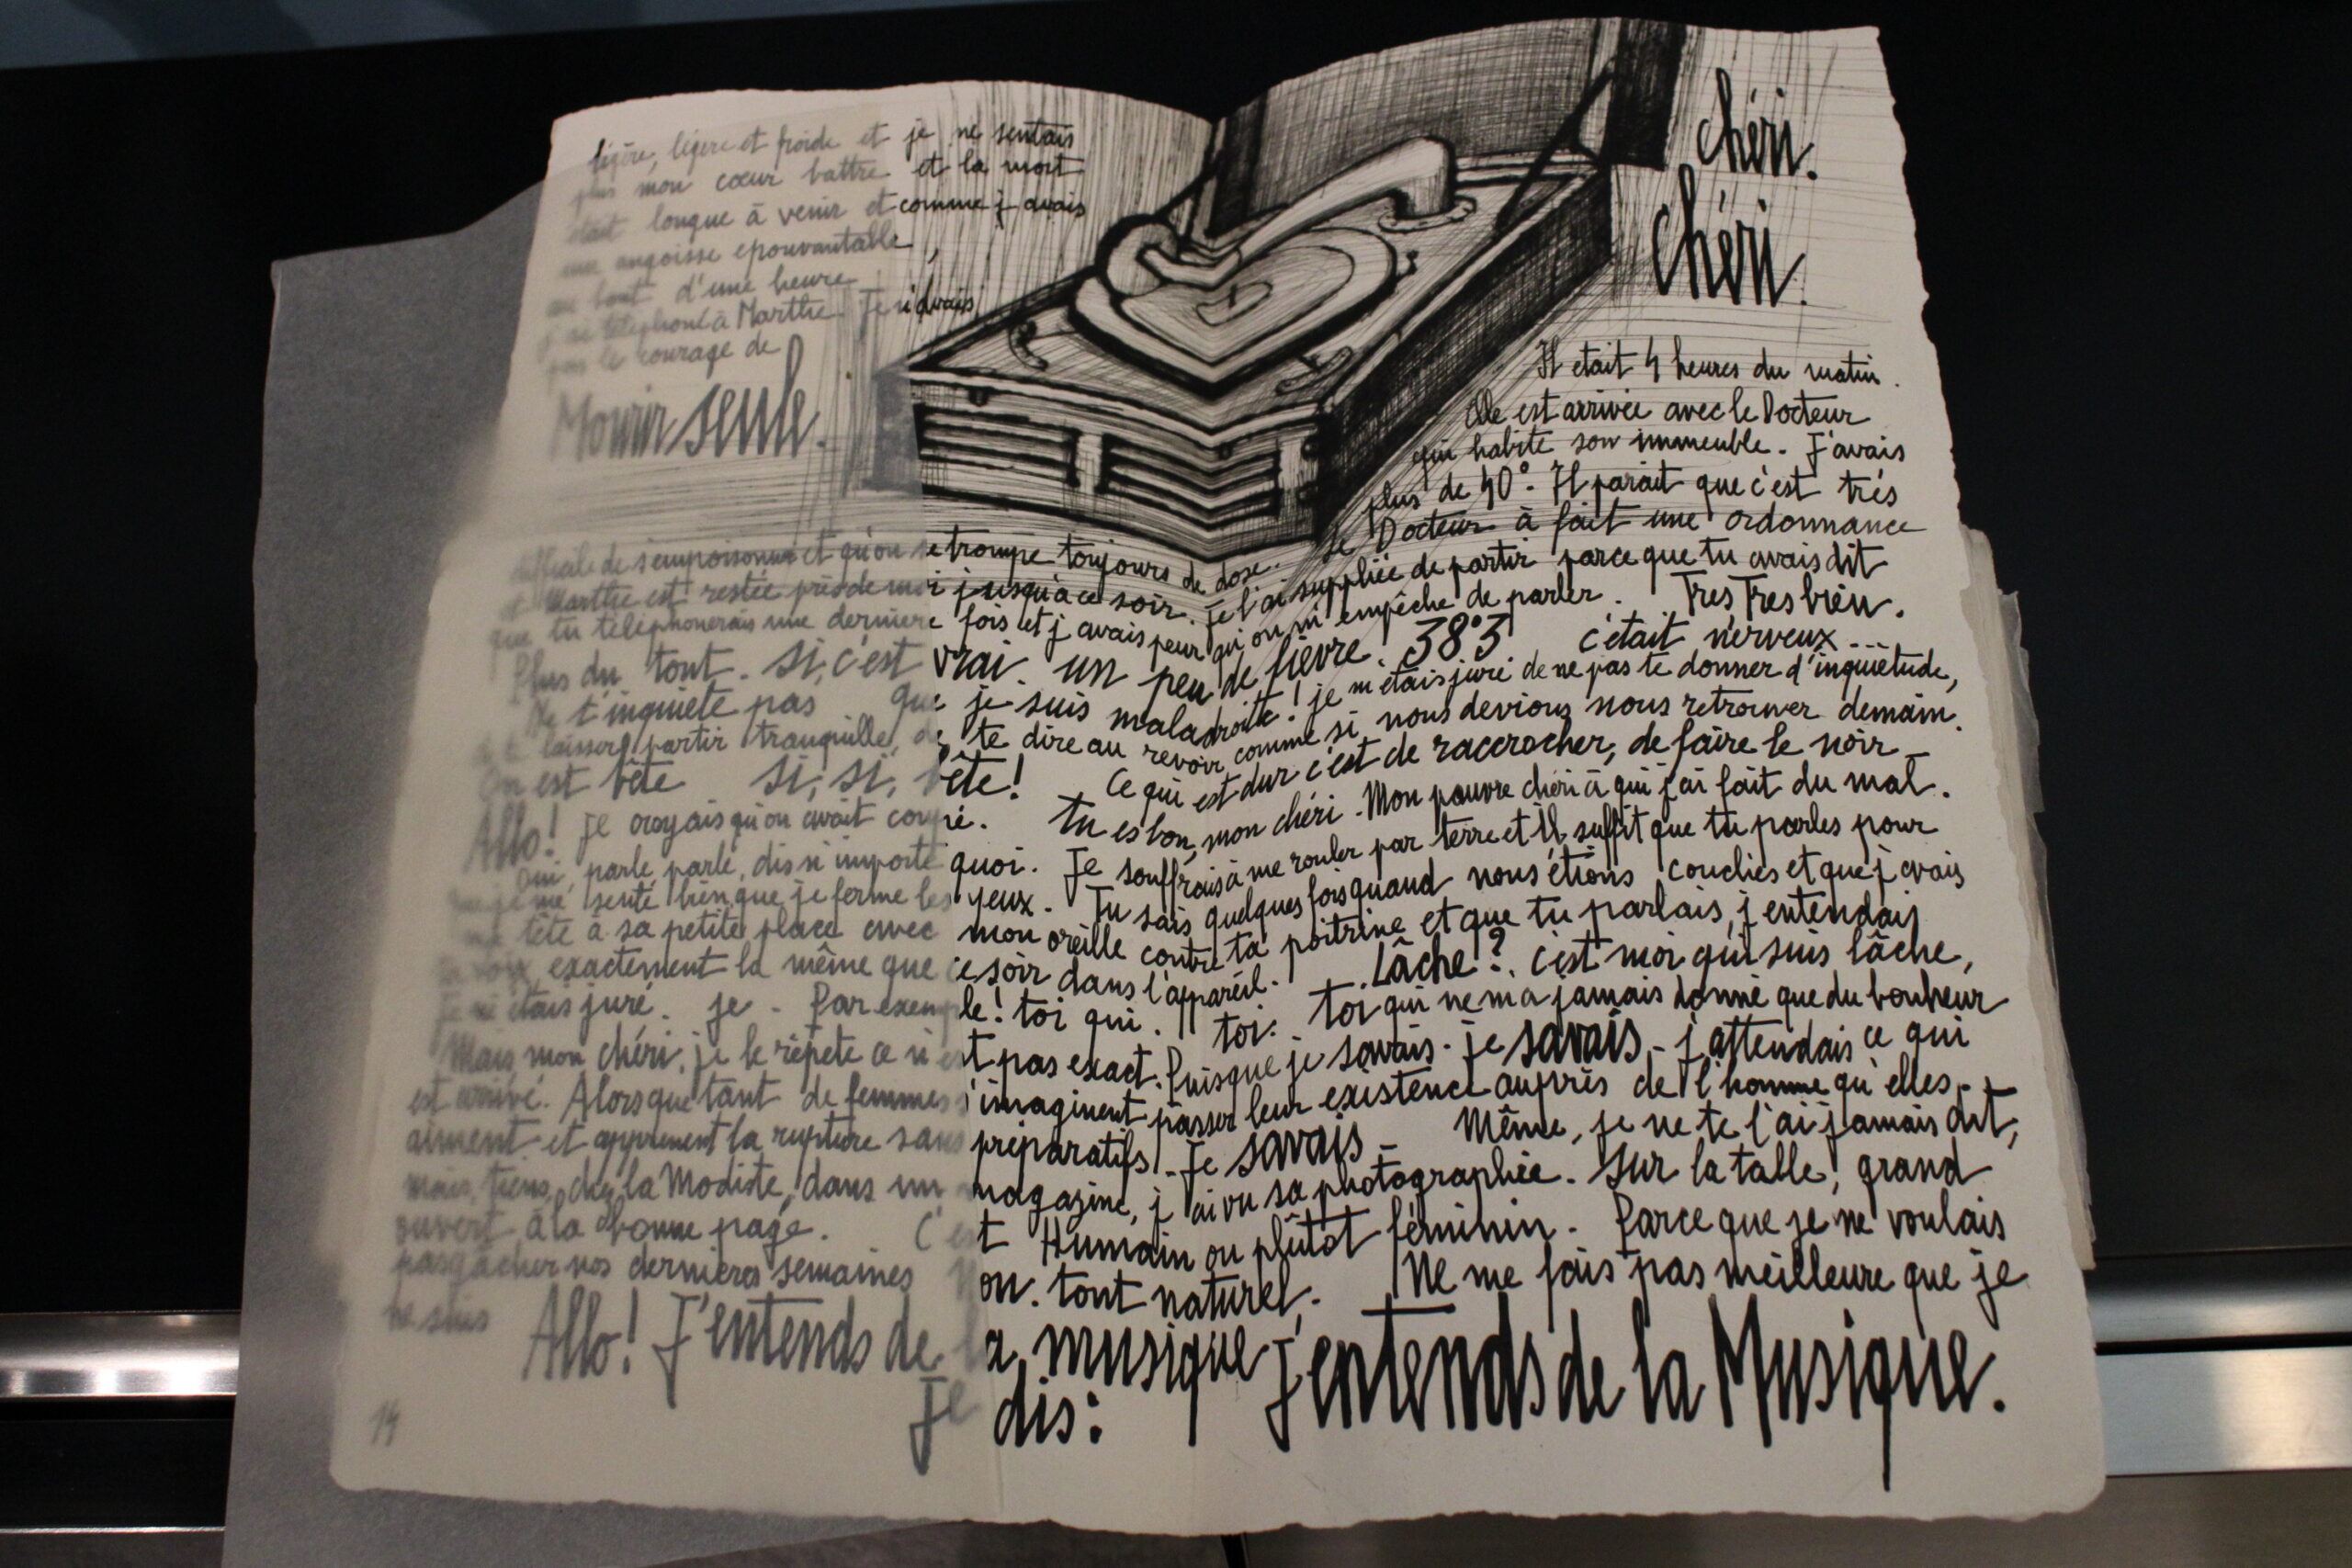 légère, légère et froide et je ne sentais
plus mon cœur battre et la mort
était longue à venir et comme j'avais
une angoisse epouvantable,
au bout d'une heure
j'ai téléphoné à Marthe. Je n'avais
pas le courage de
Mourir seule.
chéri.
chéri.
Il etait 4 heures du matin.
Elle est arrivée avec le Docteur
qui habite son immeuble. J'avais
plus de 40°. Il parait que c'est très
difficile de s'empoisonner et qu'on se trompe toujours de dose. Le Docteur à fait une ordonnance
et Marthe est restée près de moi jusqu'à ce soir. Je l'ai suppliée de partir parce que tu avais dit
que tu téléphonerais une dernière fois et j'avais peur qu'on m'empêche de parler. Tres Tres bien.
Plus du tout. Si, c'est vrai. un peu de fièvre. 38°3 c'etait nerveux...
Ne t'inquiète pas Que je suis maladroite! je m'étais juré de ne pas te donner d'inquiétude,
de te laisser partir tranquille, de te dire au revoir comme si nous devions nous retrouver demain.
On est bête Si, si, bête! Ce qui est dur c'est de raccrocher, de faire le noir _
Allo! Je croyais qu'on avait coupé. Tu es bon, mon chéri. Mon pauvre chéri à qui j'ai fait du mal.
Oui, parle, parle, dis n'importe quoi. Je souffrais à me rouler par terre et il suffit que tu parles pour
que je me sente bien, que je ferme les yeux. Tu sais quelques fois quand nous étions couchés et que j'avais
ma tête à sa petite place avec mon oreille contre ta poitrine et que tu parlais, j'entendais
ta voix, exactement la même que ce soir dans l'appareil. Lâche?. c'est moi qui suis lâche,
Je m'étais juré. je - Par exemple! toi qui. toi. toi qui ne m'a jamais donné que du bonheur
Mais mon chéri, je le répète ce n'est pas exact. Puisque je savais - je savais - j'attendais ce qui
est arrivé. Alors que tant de femmes s'imaginent passer leur existence auprès de l'homme qu'elles
aiment et apprennent la rupture sans préparatifs - Je savais - Même, je ne te l'ai jamais dit,
mais, tiens, chez la Modiste, dans un magazine, j'ai vu sa photographie. Sur la table, grand
ouvert à la bonne page. C'est Humain ou plûtot féminin. Parce que je ne voulais
pas gâcher nos dernières semaines Non. tout naturel. Ne me fais pas meilleure que je
ne suis Allo! J'entends de la musique
Je dis: J'entends de la Musique.
14